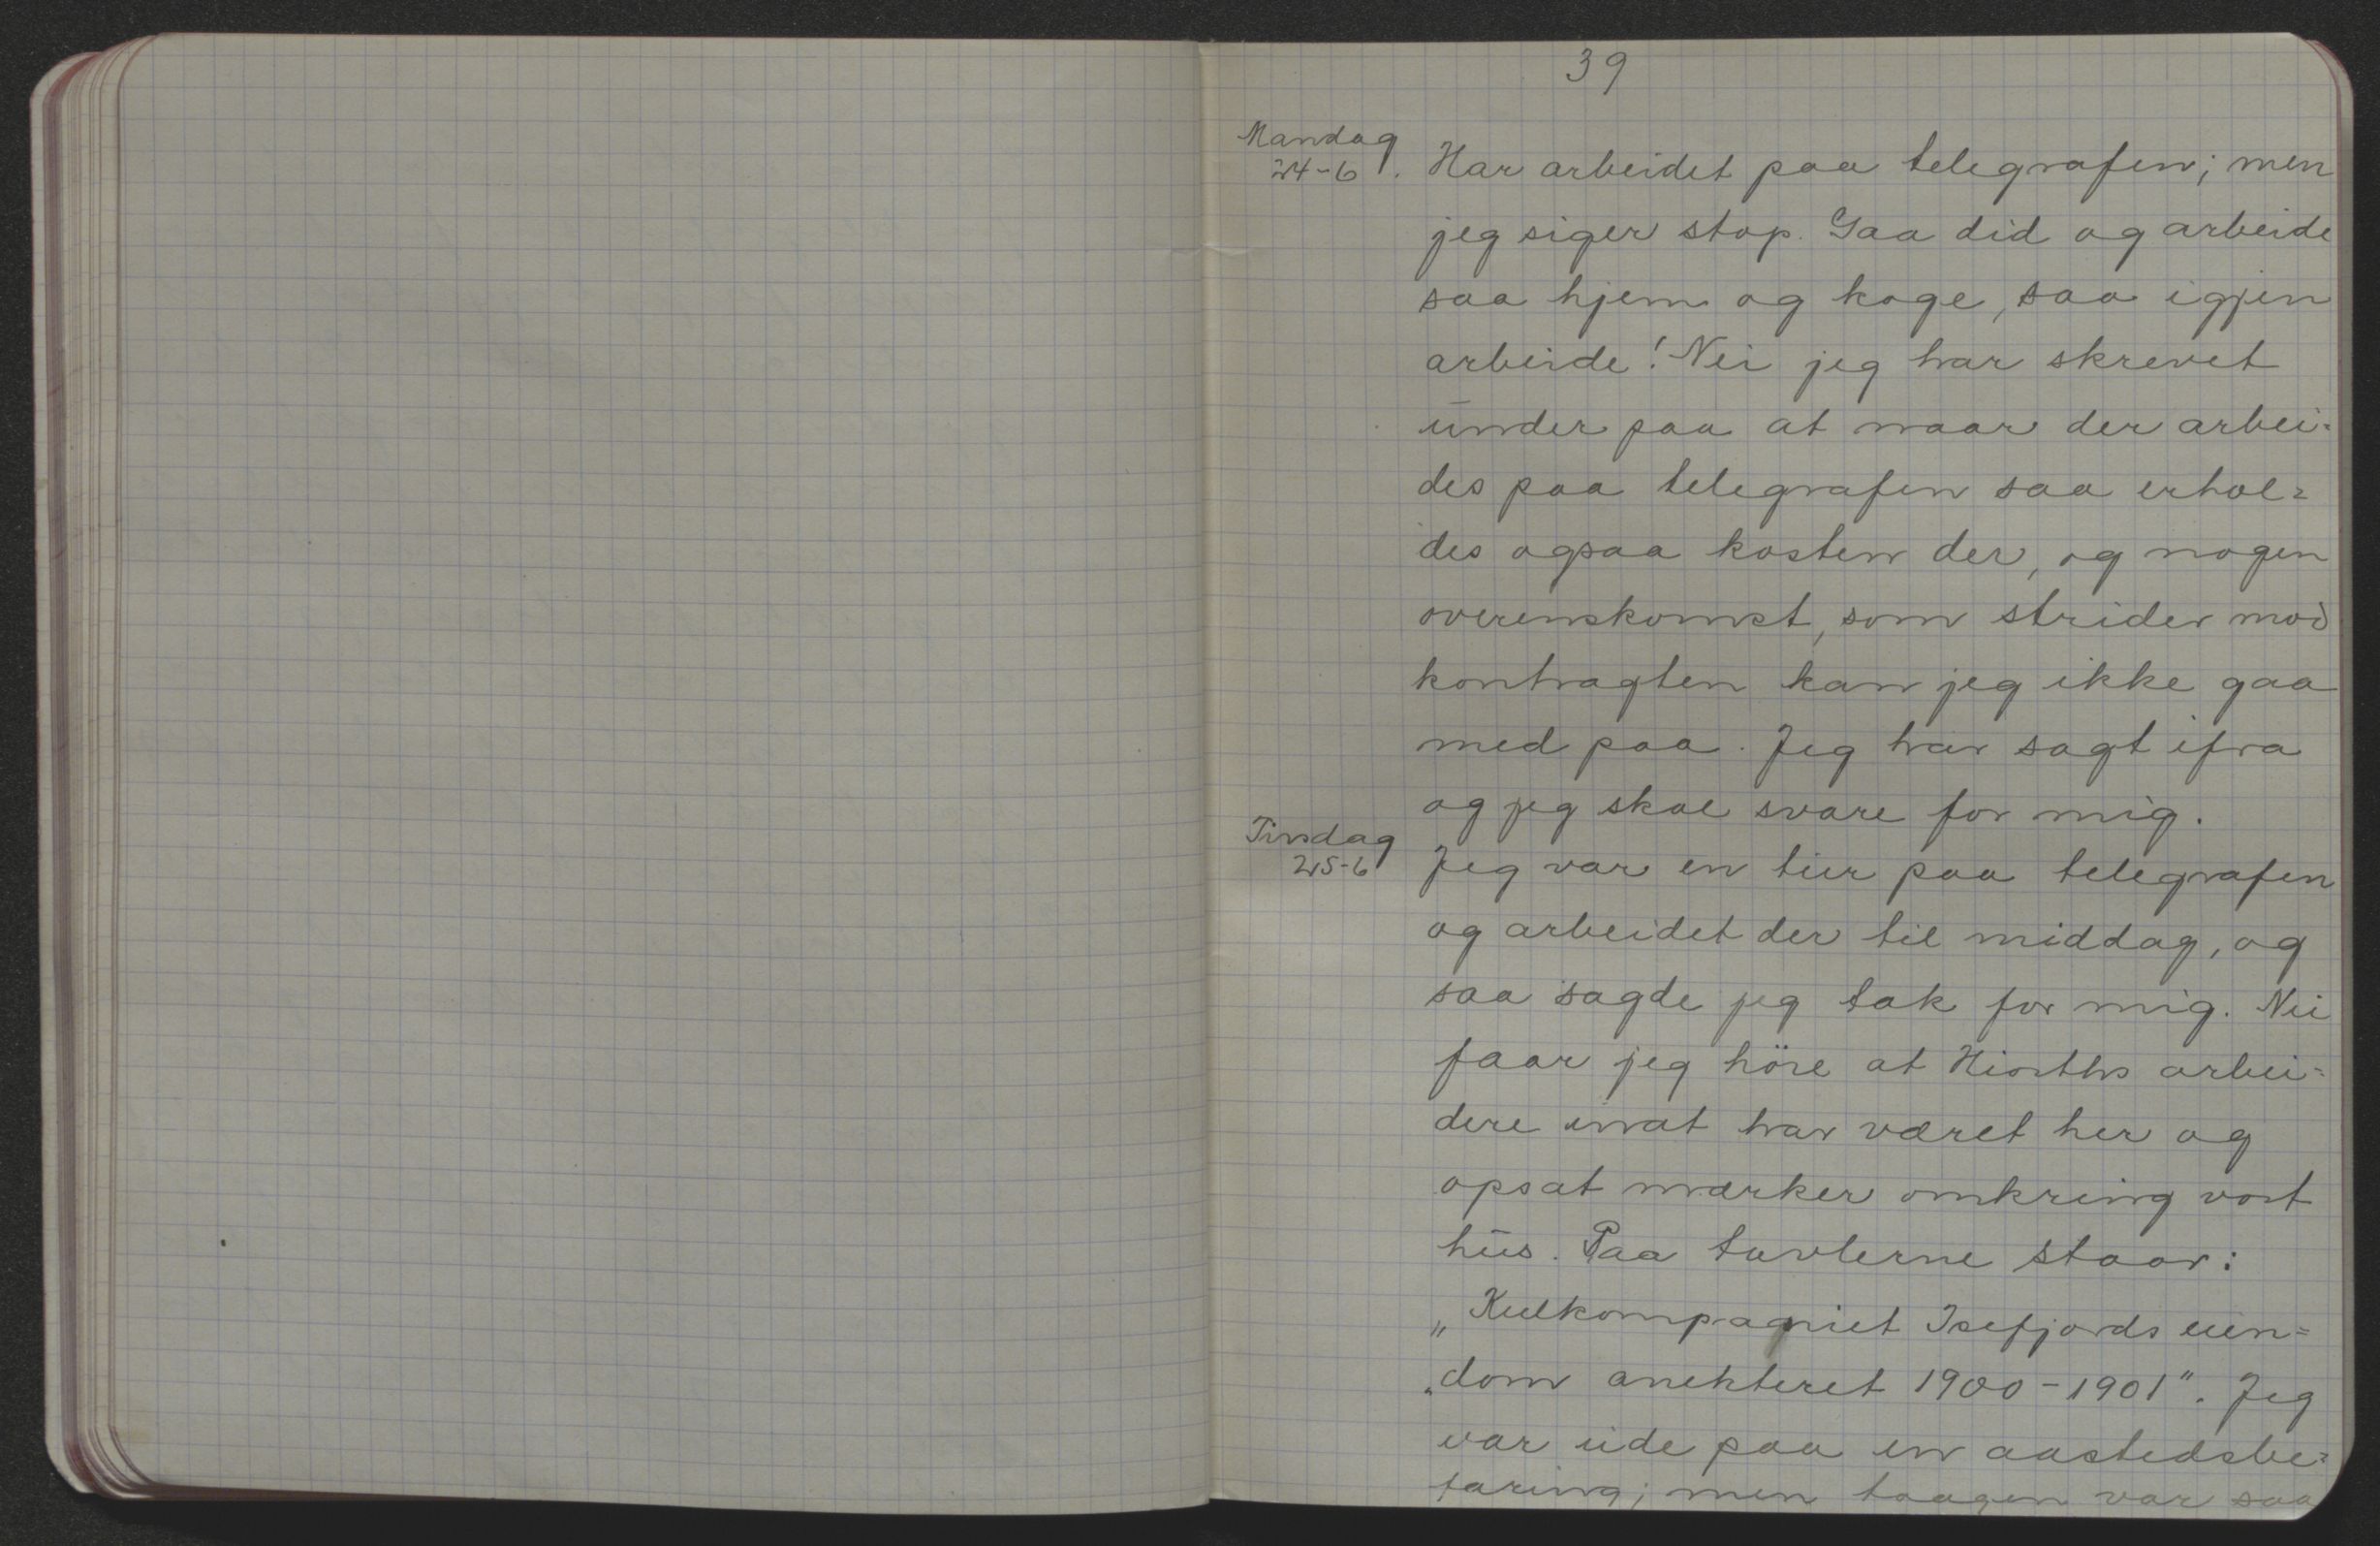 39
Mandag
24-6.
Har arbeidet paa telegrafen; men
jeg siger stop. Gaa did og arbeide
saa hjem og koge, saa igjen
arbeide! Nei jeg har skrevet
under paa at naar der arbei=
des paa telegrafen saa erhol=
des ogsaa kosten der, og nogen
overenskomst, som strider mod
kontragten kan jeg ikke gaa
med paa. Jeg har sagt ifra
og jeg skal svare for mig.
Tirsdag
25-6
Jeg var en tur paa telegrafen
og arbeidet der til middag, og
saa sagde jeg tak for mig. Nu
faar jeg höre at Hiorths arbei=
dere inat har været her og
opsat mærker omkring vort
hus. Paa tavlerne staar:
„Kulkompagniet Isefjords eien=
„dom anekteret 1900-1901". Jeg
var ude paa en aastedsbe=
faring; men taagen var saa